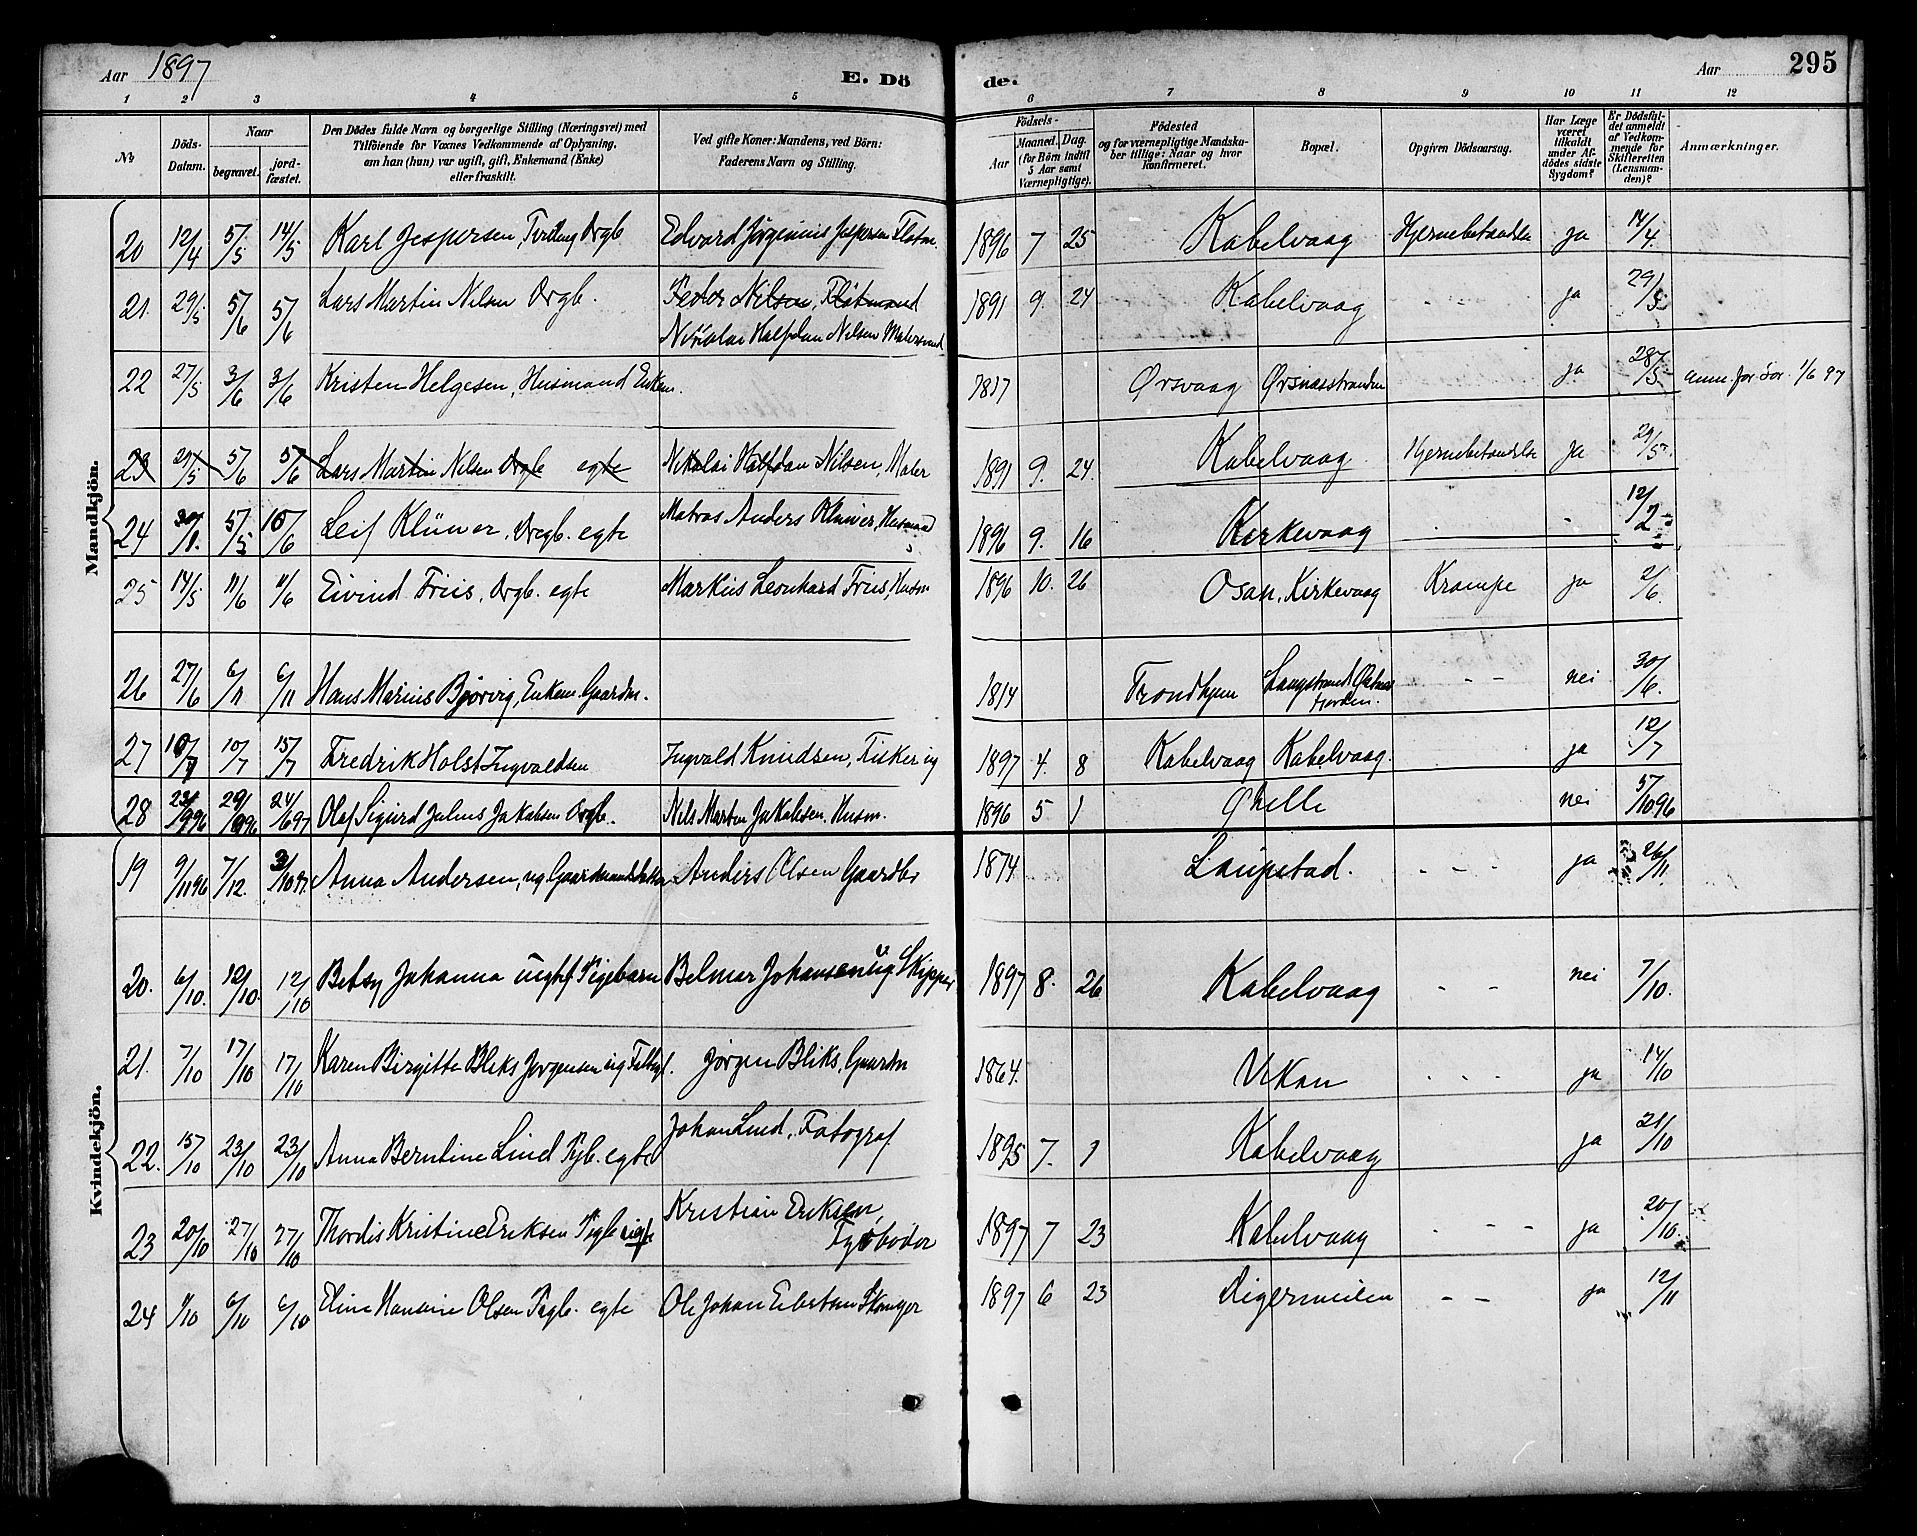 Aar 1897 E. Dö de. Aar 295
1 2 3 4 5 6 7 8 9 10 11 12
No
Döds-Datum.
Naar
begravet. jordfæstet.
Den Dödes fulde Navn og borgerlige Stilling (Næringsvei) med
Tilföiende for Voxnes Vedkommende af Oplysning,
om han (hun) var ugift, gift, Enkemand (Enke)
eller fraskilt.
Ved gifte Koner: Mandens, ved Börn:
Faderens Navn og Stilling.
Födsels-
Aar Maaned. Dag.
(for Börn indtil
5 Aar samt
Værnepligtige).
Födested
og for værnepligtige Mandska-
ber tillige: Naar og hvor
konfirmeret.
Bopæl.
Opgiven Dödsaarsag.
Har Læge
været
tilkaldt
under Af-
dödes sidste
Sygdom?
Er Dödsfal-
det anmeldt
af Vedkom-
mende for
Skifteretten
(Lensman-
den)?
Anmærkninger.
Mandkjön.
20 12/4 5/5 14/5 Karl Jespersen, Tvilling Drgb Edvard Jörginius Jespersen Flotm. 1896 7 25 Kabelvaag Hjernebetændelse ja 14/4
21. 29/5 5/6 5/6 Lars Martin Nilsen Drgb. Peder Nilsen, Flötmand 1891 9. 24 Kabelvaag - - - ja 29/5
Nikolai Halfdan Nilsen Malersvend
22 27/5 3/6 3/6 Kristen Helgesen, Husmand Enkem. 1817 Ørsvaag Ørsnæsstranden ja 28/5 anm. for Sor. 1/6 97
23 29/5 5/6 5/6 Lars Martin Nilsen Drgb egte Nikolai Halfdan Nilsen, Maler 1891 9. 24. Kabelvaag Hjernebetændelse ja 29/5
24 30/1. 5/5 10/6 Leif Klüwer, Drgb. egte Matias Anders Klüwer, Husmand 1896 9. 16 Kirkevaag - - 12/2
25 14/5 11/6 11/6 Eivind Friis, Drgb. egte Markus Leonhard Friis, Husm 1896 10. 26 Osan, Kirkevaag Krampe ja 2/6.
26 27/6 6/11 6/11 Hans Marius Bjørvig, Enkem. Gaardm. 1814 Trondhjem Langstrand
fjorden. - - nei 30/6.
27 10/7 10/7 15/7 Fredrik Holst Ingvaldsen Ingvald Knudsen, Fisker ig 1897 4. 8 Kabelvaag Kabelvaag. ja 12/7
28 23/9 96 29/9 96 24/6 97 Olaf Sigurd Julius Jakobsen Drgb. Nils Martin Jakobsen, Husm. 1896 5 1 Ghelle nei 5/10 96
Kvindekjön.
19 9/11 96 7/12. 3/10 97. Anna Andersen, ug Gaardmandsdatter Anders Olsen Gaardbr 1874 Laupstad. - - - ja 26/11
20. 6/10. 12/10. 12/10 Betsy Johanna uegte Pigebarn Belmar Johansen ug. Skipper 1897 8. 26 Kabelvaag - - nei 7/10.
21. 7/10 17/10 17/10 Karen Birgitte Bliks Jørgensen ug Fattigl. Jørgen Bliks, Gaardm 1864. Vikan - - - ja 14/10
22. 15/10 23/10 23/10 Anna Berntine Lind Pgb. egte Johan Lind, Fotograf 1895 7. 1 Kabelvaag ja 21/10
23 20/10 27/10 27/10 Thordis Kristine Eriksen Pigb. egte Kristian Eriksen, 1897 7 23 Kabelvaag - - - ja 20/10.
24 1/10 6/10 6/10 Eline Hansine Olsen Pigb. egte Ole Johan Skomager 1897 6 23 Digermulen - - ja 12/11